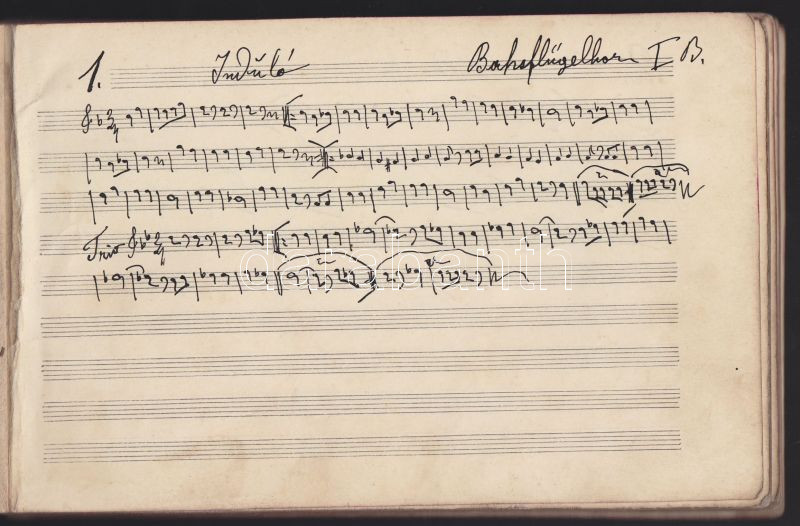 1. Induló Bassflügelhorn I B.
Trio
darabanth